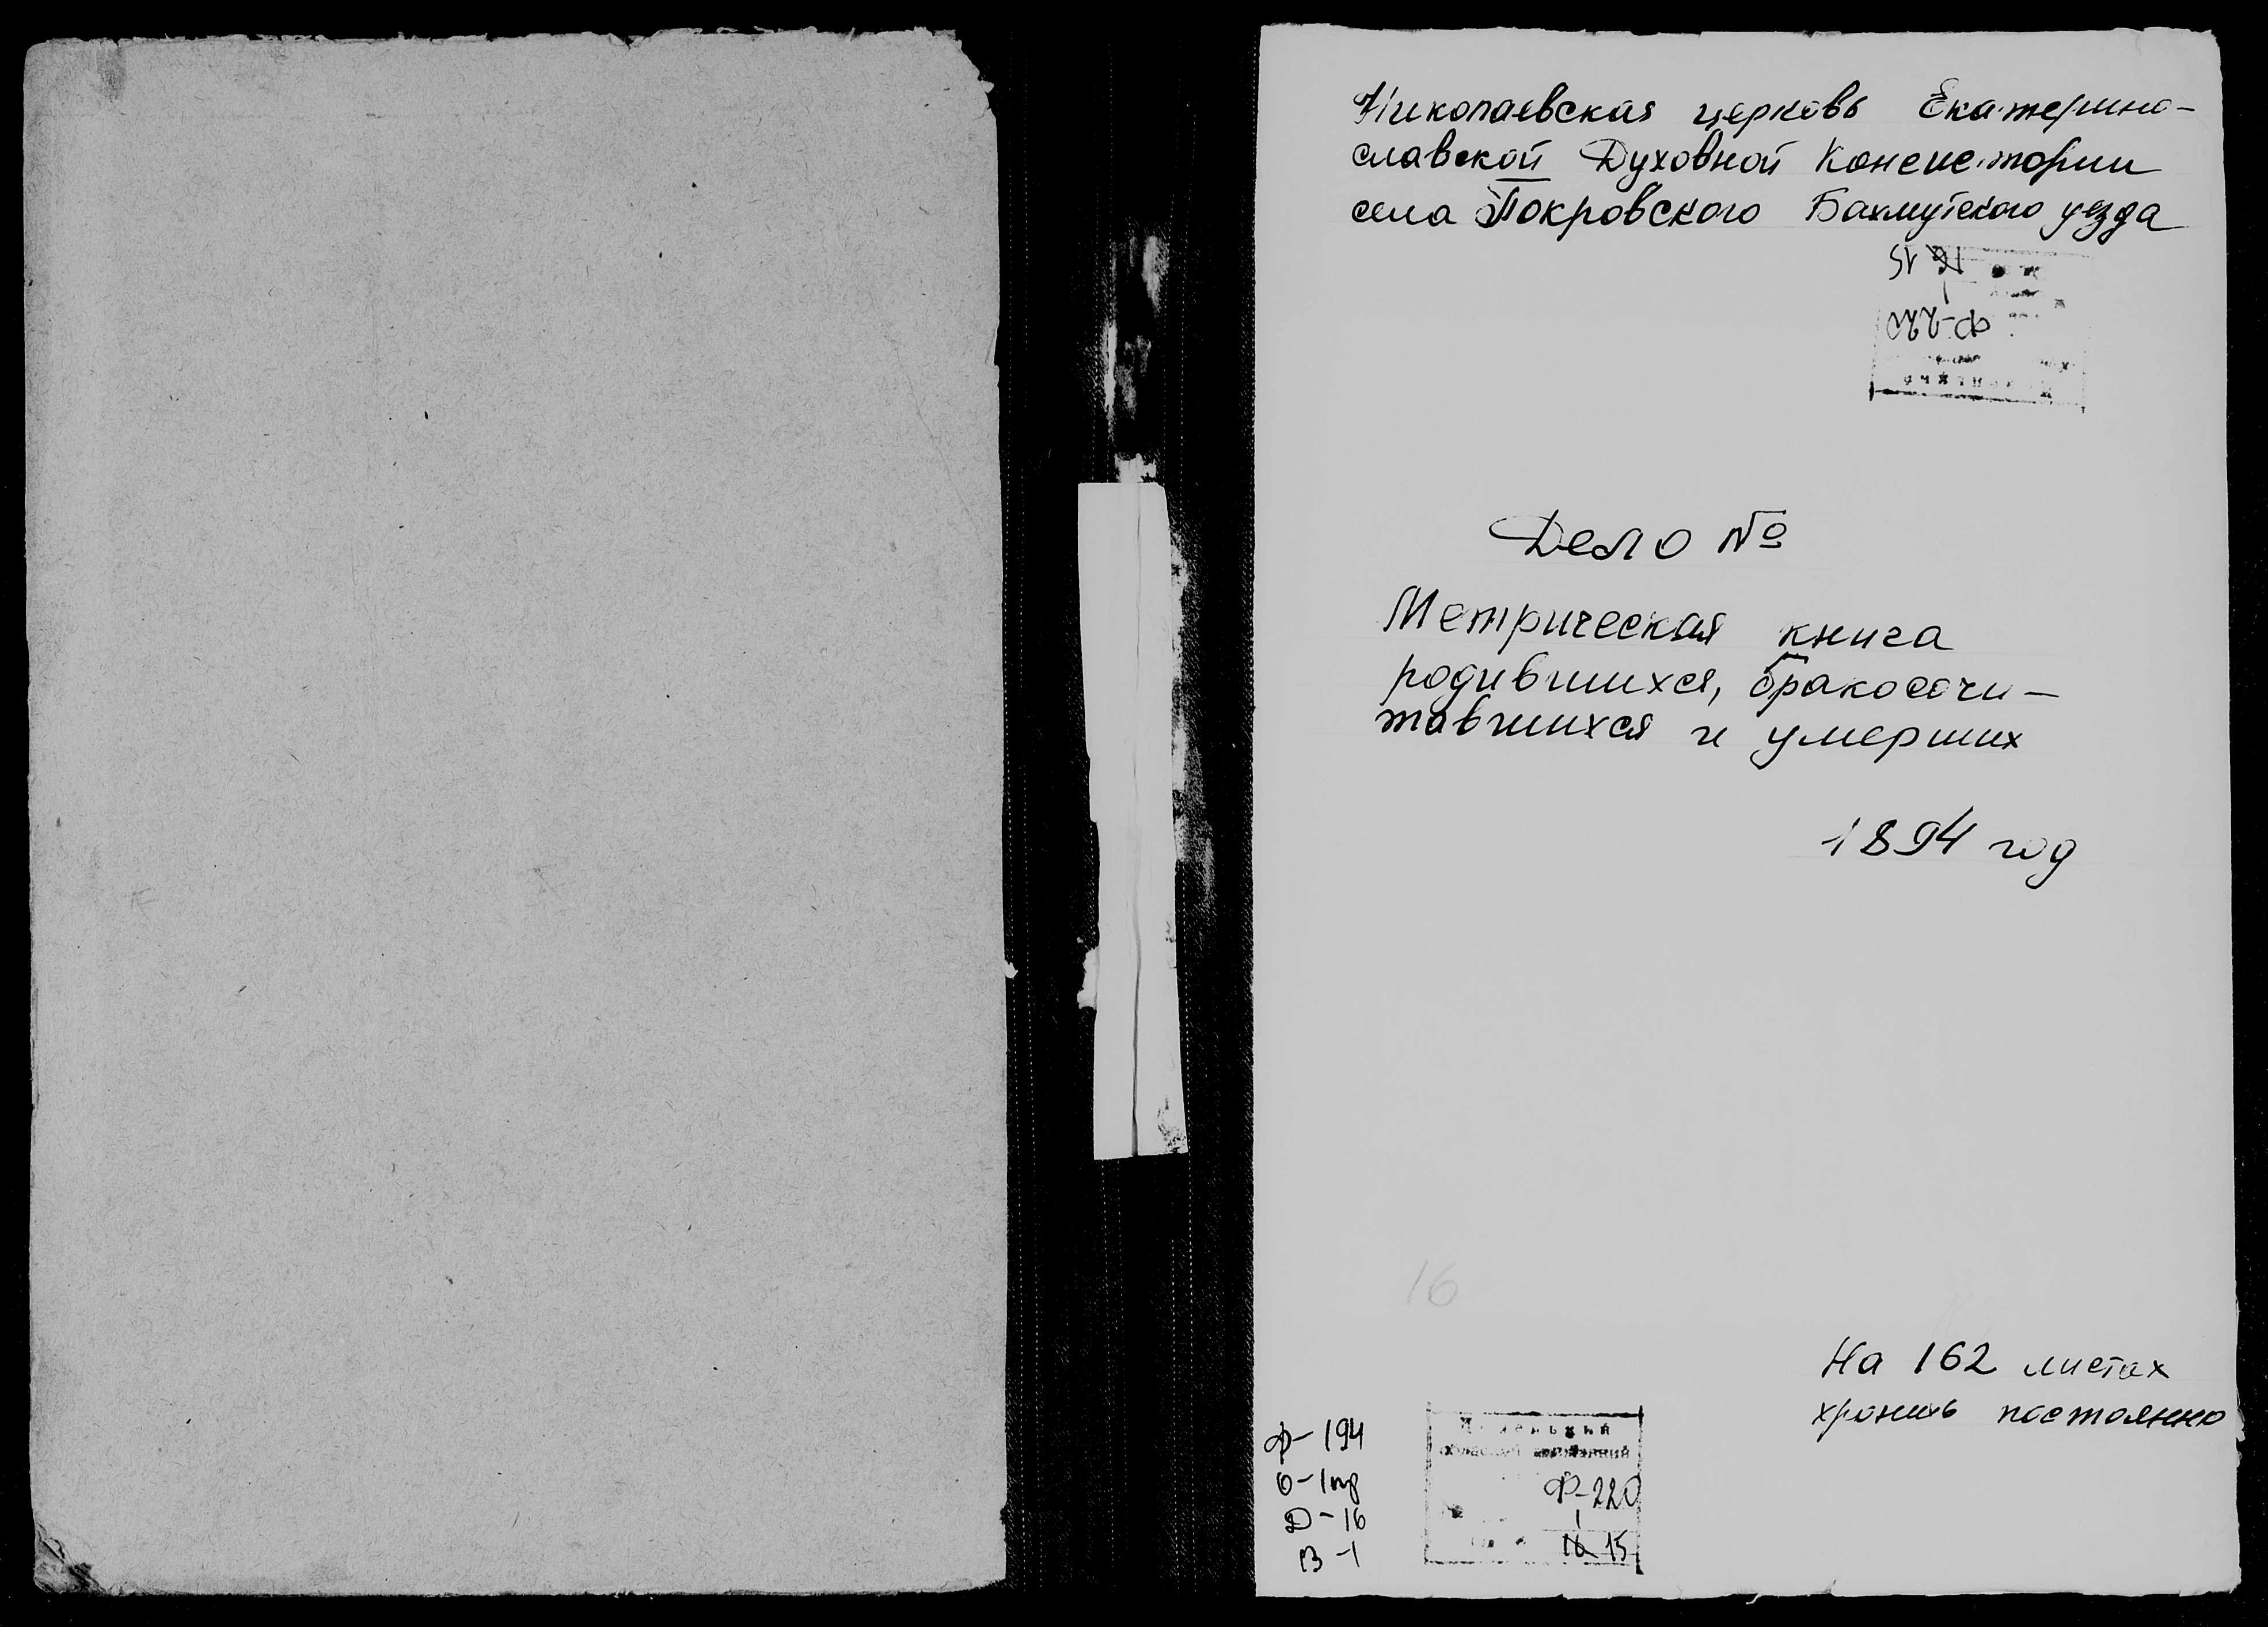 Николаевская церковь Екатерино-
славской Духовной Консистории
села Покровского Бахмутского уезда
16 15
1
Ф-220
Дело №
Метрическая книга
родившихся, бракосочи-
тавшихся и умерших
1894 год
16
На 162 листах
хранить постоянно
Ф-194
О-1пр
Д-16
В-1
Ф-220
1
16 15